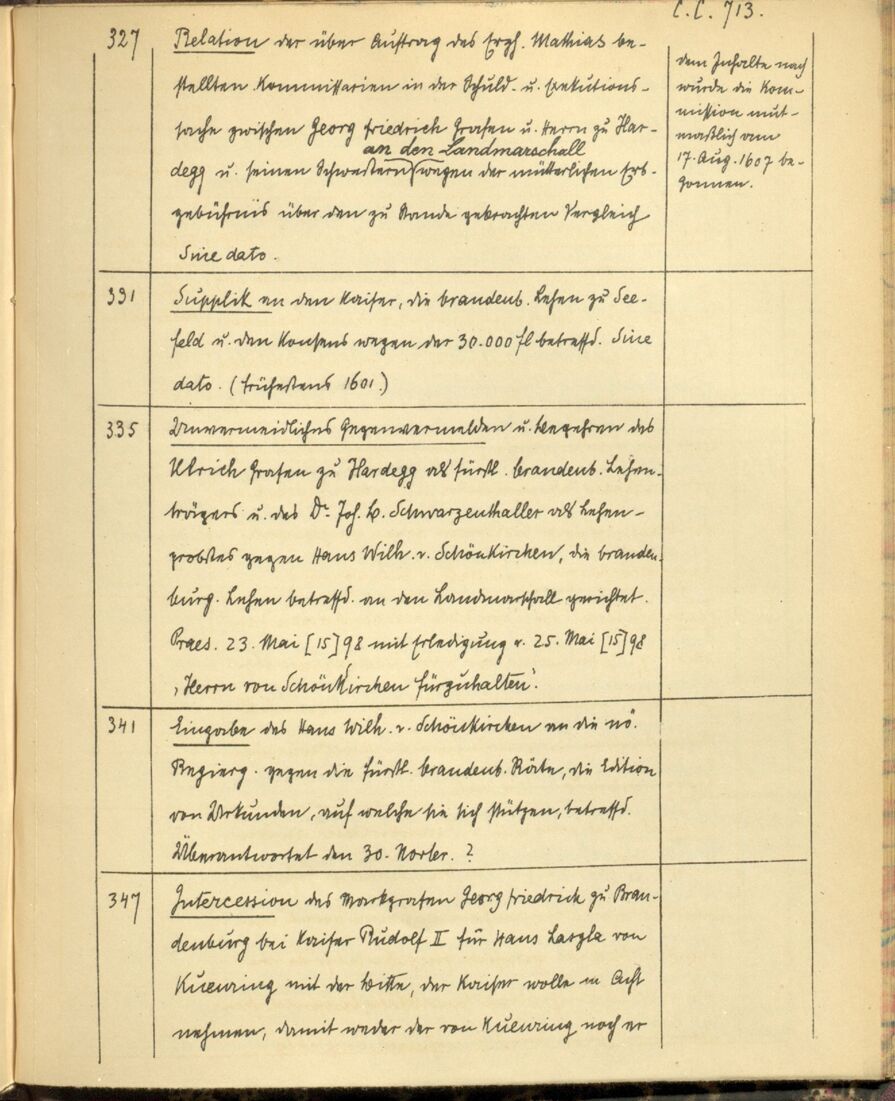 C.C. 713.
327 Relation der über Auftrag des Erzh. Mathias be-
stellten Kommissarien in der Schuld- u. Exekutions-
sache zwischen Georg Friedrich Grafen u. Herrn zu Har-
an den Landmarschall
degg u. seinen Schwestern wegen der mütterlichen Erb-
gebührnis über den zu Stande gebrachten Vergleich
Sine dato.
dem Inhalte nach
wurde die Kom-
mission mut-
maßlich am
17. Aug. 1607 be-
gonnen.
331 Supplik an den Kaiser, die brandenb. Lehen zu See-
feld u. den Konsens wegen der 30.000 fl betreffd. Sine
dato. (frühestens 1601.)
335 Unvermeidliches Gegenvermelden u. Begehren des
Ulrich Grafen zu Hardegg als fürstl. brandenb. Lehen-
trägers u. des Dr. Joh. B. Schwarzenthaller als Lehen-
probstes gegen Hans Wilh. v. Schönkirchen, die branden-
burg. Lehen betreffd. an den Landmarschall gerichtet.
Praes. 23. Mai [15]98 mit Erledigung v. 25. Mai [15]98
'Herrn von Schönkirchen fürzuhalten'.
341 Eingabe des Hans Wilh. v. Schönkirchen an die nö.
Regierg. gegen die fürstl. brandenb. Räte, die Edition
von Urkunden, auf welche sie sich stützen, betreffd.
Überantwortet den 30. Novber. ?
347 Intercession des Markgrafen Georg Friedrich zu Bran-
denburg bei Kaiser Rudolf II für Hans Laszla von
Kuenring mit der Bitte, der Kaiser wolle in Acht
nehmen, damit weder der von Kuenring noch er